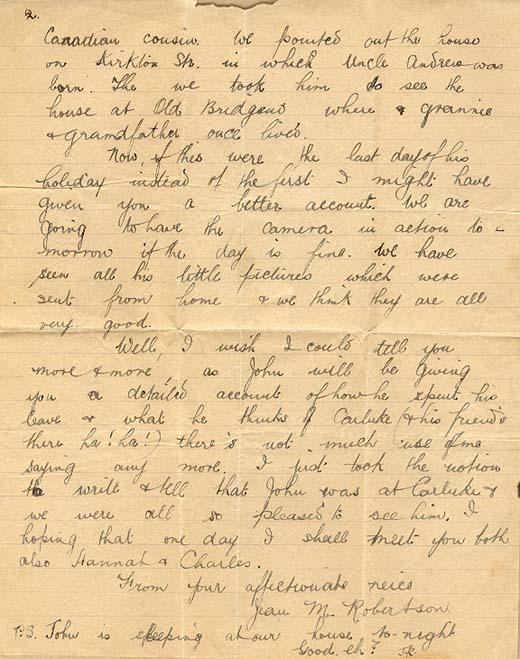 2.
Canadian cousin. We pointed out the house
on Kirkton Str. in which Uncle Andrew was
born. The we took him to see the
house at Old Bridgend where & grannie
& grandfather once lived.
Now, if this were the last day of his
holiday instead of the first I might have
given you a better account. We are
going to have the camera in action to-
morrow if the day is fine. We have
seen all his little pictures which were
sent from home & we think they are all
very good.
Well, I wish I could tell you
more & more, as John will be giving
you a detailed account of how he spent his
leave & what he thinks of Carluke (& his friends
there ha! ha!) there's not much use of me
saying any more. I just took the notion
to write & tell that John was at Carluke &
we were all so pleased to see him. I
hoping that one day I shall meet you both
also Hannah & Charles.
From your affectionate neice
Jean M. Robertson.
P.S. John is sleeping at our house to-night
Good. eh?